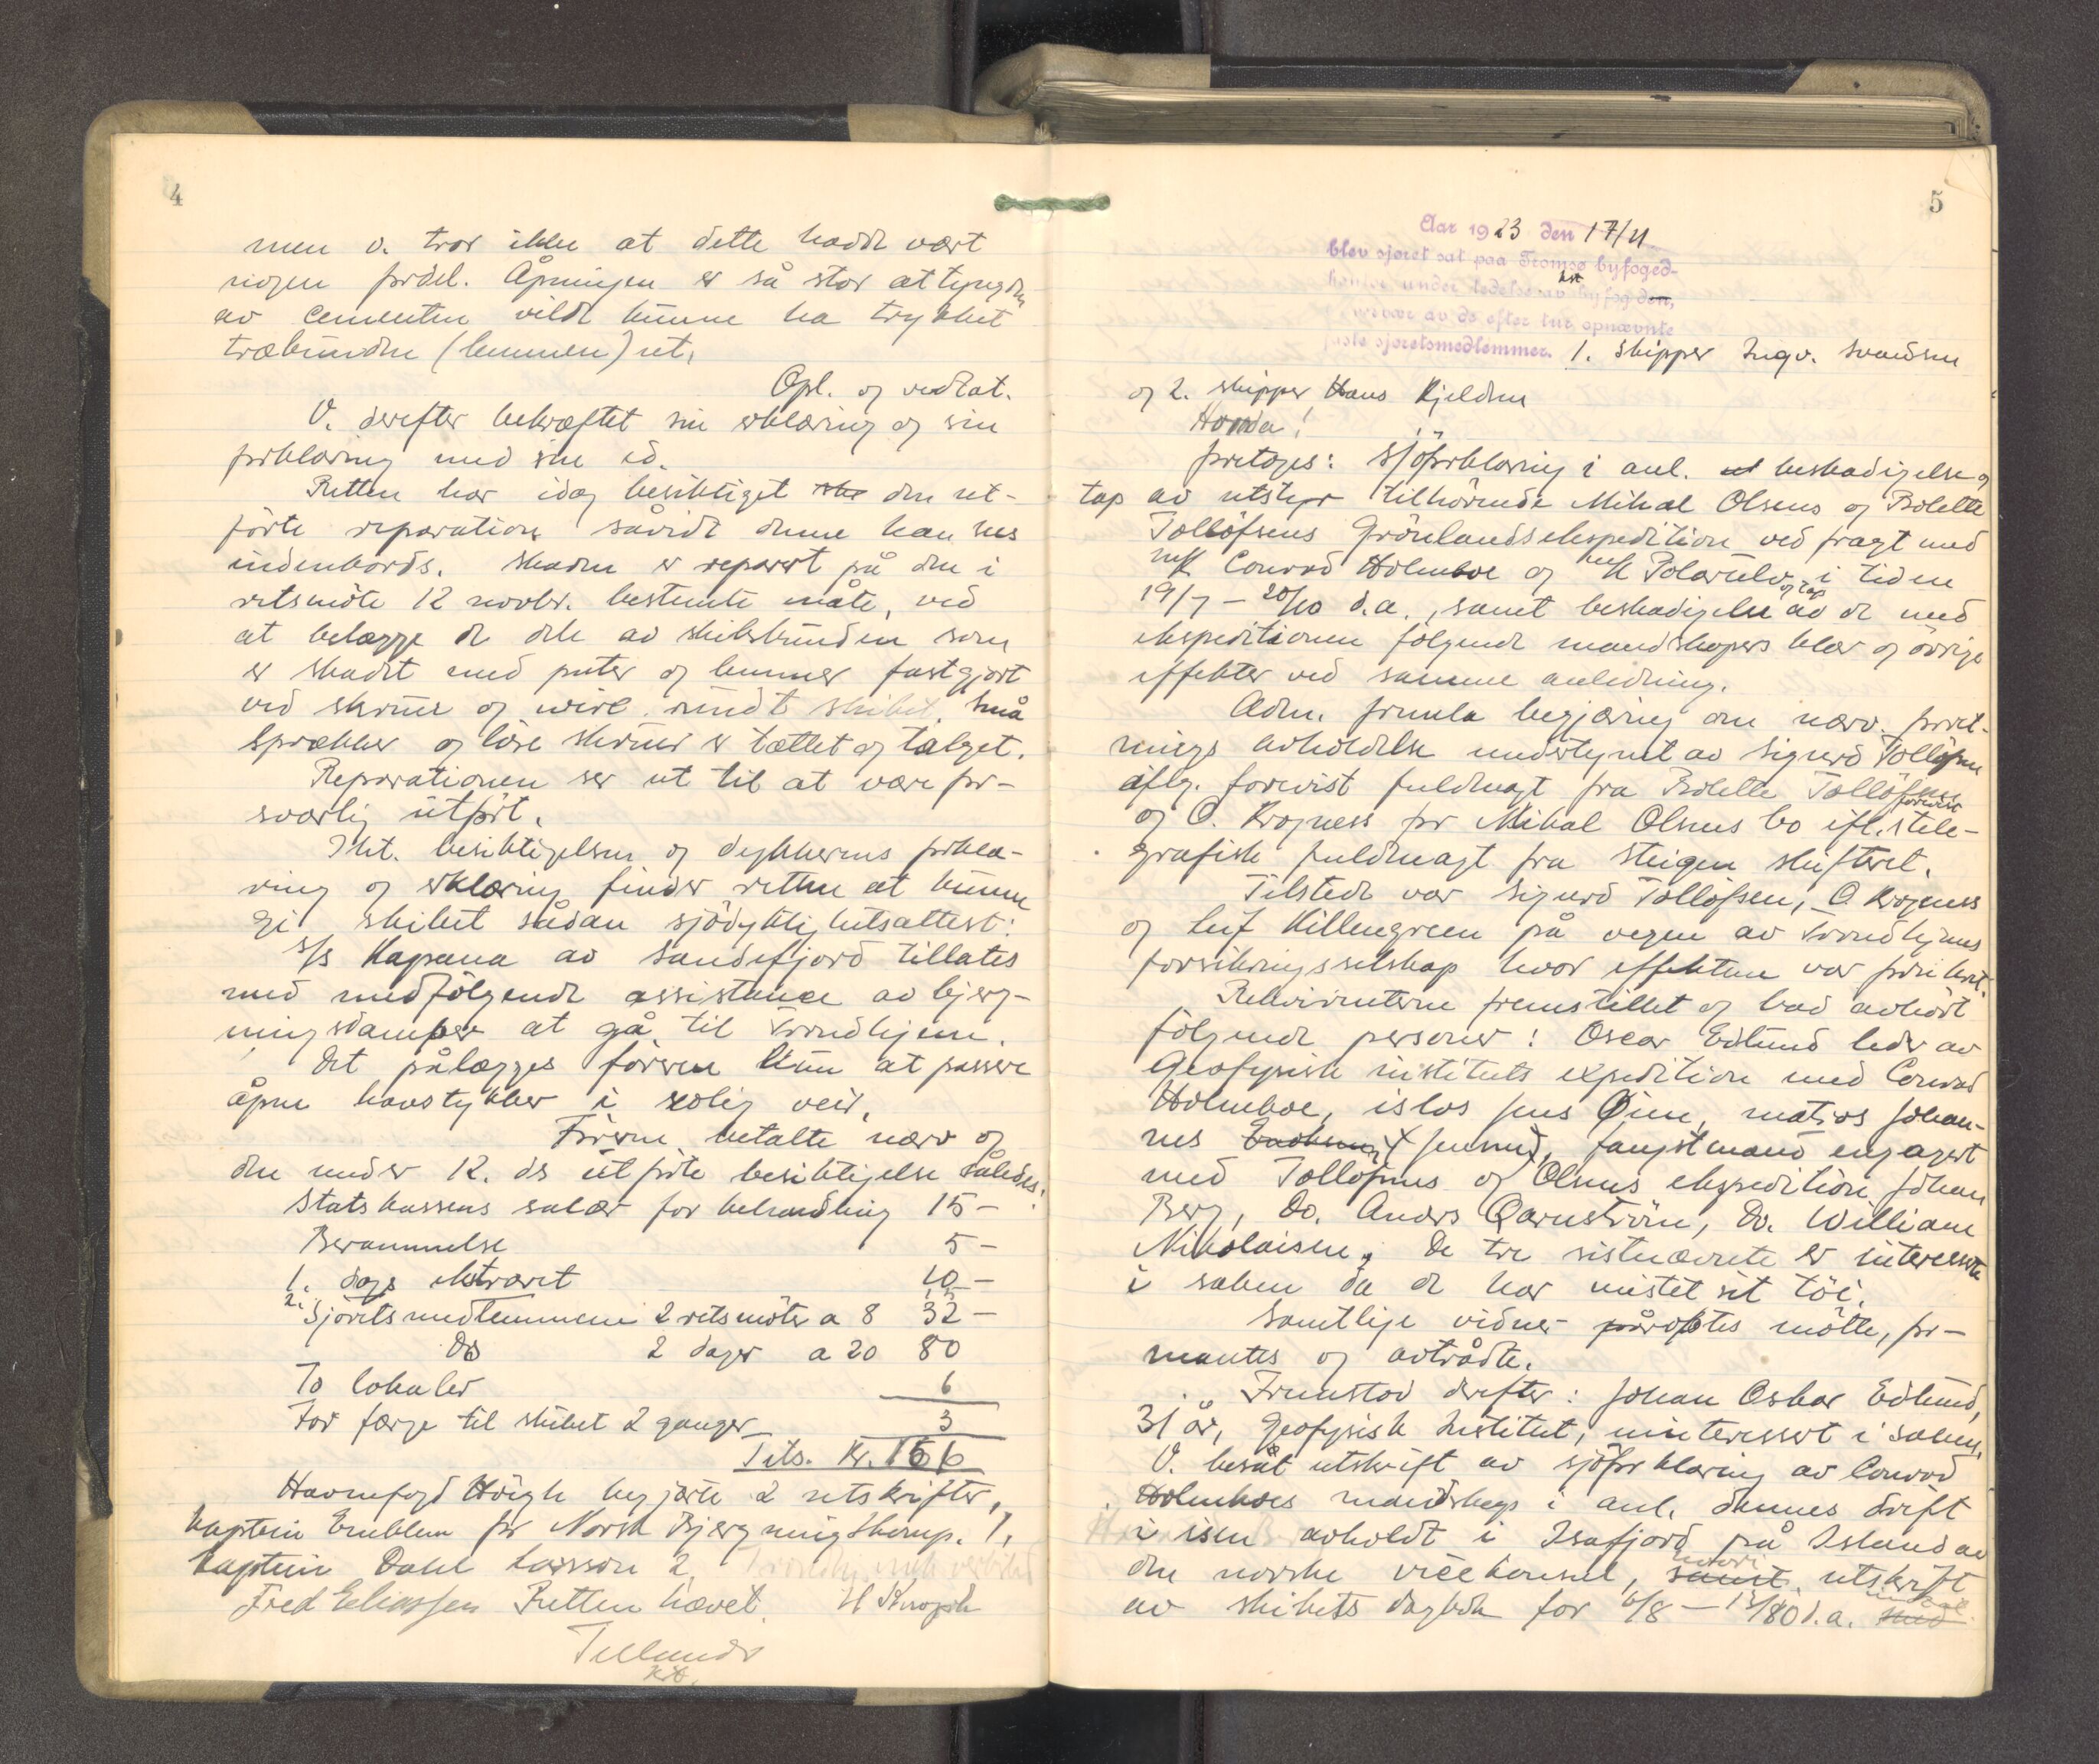 4
men v. tror ikke at dette hadde vært
nogen fordel. Åpningen er så stor at tyngden
av cementen vilde kunne ha trykket
træbunden (lemmen) ut.
Opl. og vedtat.
V. derefter bekræftet sin erklæring og sin
forklaring med sin ed.
Retten har idag besiktiget den ut-
førte reparation såvidt denne kan sees
indenbords. Skaden er reparert på den i
retsmöte 12 novbr. bestemte måte, ved
at belægge de dele av skibsbunden som
er skadet med puter og lemmer fastgjort
ved skruer og wire rundt skibet. Små
sprækker og löse skruer er tættet og talget.
Reparationen ser ut til at være for-
svarlig utfört.
Iht. besiktigelsen og dykkerens forkla-
ring og erklæring finder retten at kunne
gi skibet sådan sjödyktighetsattest:
S/S Kapana av Sandefjord tillates
med medfölgende assistance av bjerg-
ningsdamper at gå til Trondhjem.
Det pålægges föreren kun at passere
åpne havstykker i rolig veir.
Föreren betalte nærv og
den under 12. ds utförte besiktigelse således:
Statskassens salær for behandling 15 -
Berammelse 5 -
1. dags ekstraret 10 -
2. Sjöretsmedlemmene 2 retsmöter a 8 32 -
Do 2 dager a 20 80
To lokaler 6
For færge til skibet 2 ganger 3
Tils. Kr. 156
Havnefogd Höigh begjærte 2 utskrifter,
kaptein Emblem for Norsk Bjergningskomp. 1,
kaptein Dahl Larsson 2
Fred Eliassen Retten hævet. H Knoph
Tellands
5
Aar 1923 den 17/11
blev sjøret sat paa Tromsø byfoged-
kontor under ledelse av kst byfogden,
av de efter tur opnævnte
faste sjøretsmedlemmer. 1. skipper Ingv. Svendsen
og 2. skipper Hans Kjeldsen
Hvorda!
foretoges: Sjöforklaring i anl. beskadigelse og
tap av utstyr tilhörende Mikal Olsens og Bolette
Tollöfsens Grönlandsekspedition ved fragt med
m/k Conrad Holmboe og m/k Polarulv i tiden
19/7 - 20/10 d.a., samt beskadigelse og tap av de med
ekspeditionen fölgende mandskapers klær og övrige
effekter ved samme anledning.
Adm. fremla begjæring om nærv. forret-
nings avholdelse undertegnet av Sigurd Tollöfsen
iflg. forevist fuldmagt fra Bolette Tollöfsen
og O. Krogness for Mikal Olsens bo ifl. forevist tele-
grafisk fuldmagt fra Steigen skifteret.
Tilstede var Sigurd Tollöfsen, O Krogness
og Leif Killengreen på vegne av Trondhjems
forsikringsselskap hvor effektene var forsikret.
Rekvirenterne fremstillet og bad avhört
fölgende personer: Oscar Edlund leder av
Geofysisk instituts expedition med Conrad
Holmboe, islos Jens Öien, matros Johan-
nes Jensen, fangstmand engagert
med Tollöfsens og Olsens ekspedition Johan
Berg, Do. Anders Qarnström, Do. William
Nikolaisen. De tre sistnævnte er interessert
i saken da de har mistet sit töi.
Samtlige vidner påroptes mötte, for-
mantes og avtrådte.
Fremstod derefter: Johan Oskar Edlund,
31 år, Geofysisk Institut, uinteressert i saken.
V. besåt utskrift av sjöforklaring av Conrad
Holmboes mandskap i anl. dennes drift
i isen avholdt i Isafjord på Island av
den norske vicekonsul, hvori utskrift
av skibets dagbok for 6/8 - 13/80 d.a.